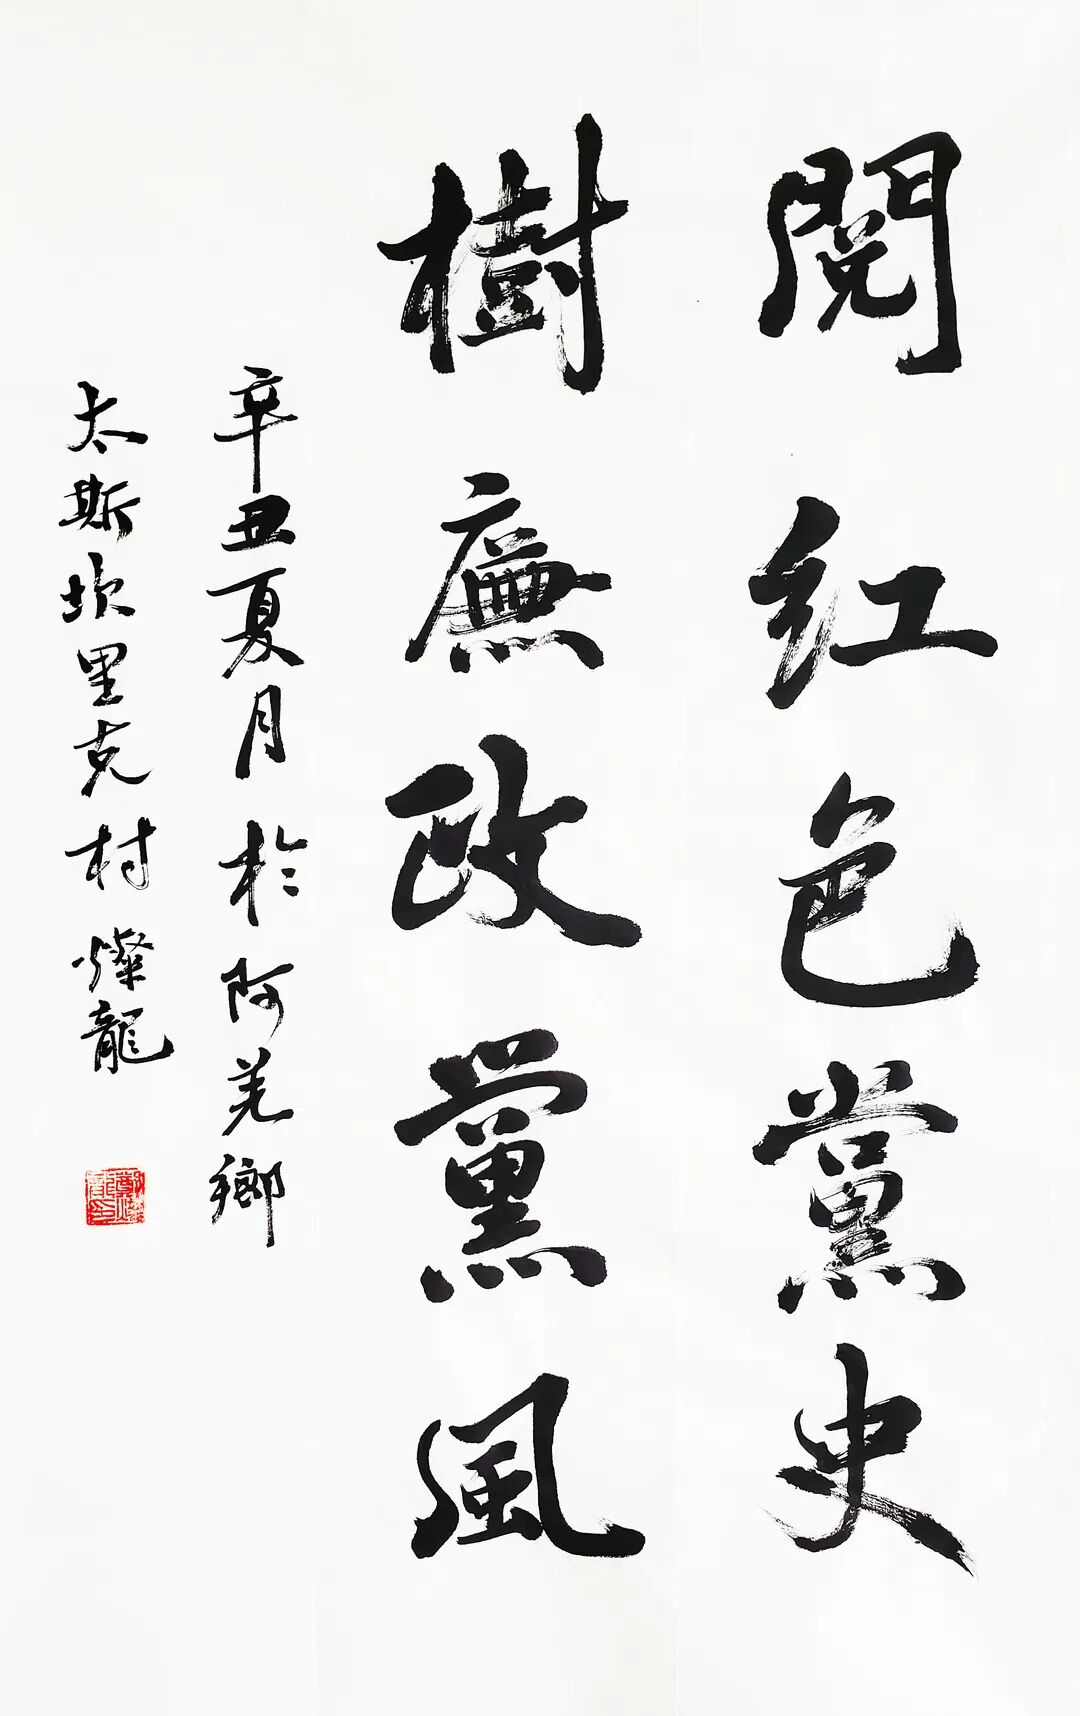 閱红色黨史
樹廉政黨風
辛丑夏月於阿羌鄉
太斯坎里克村燦龍